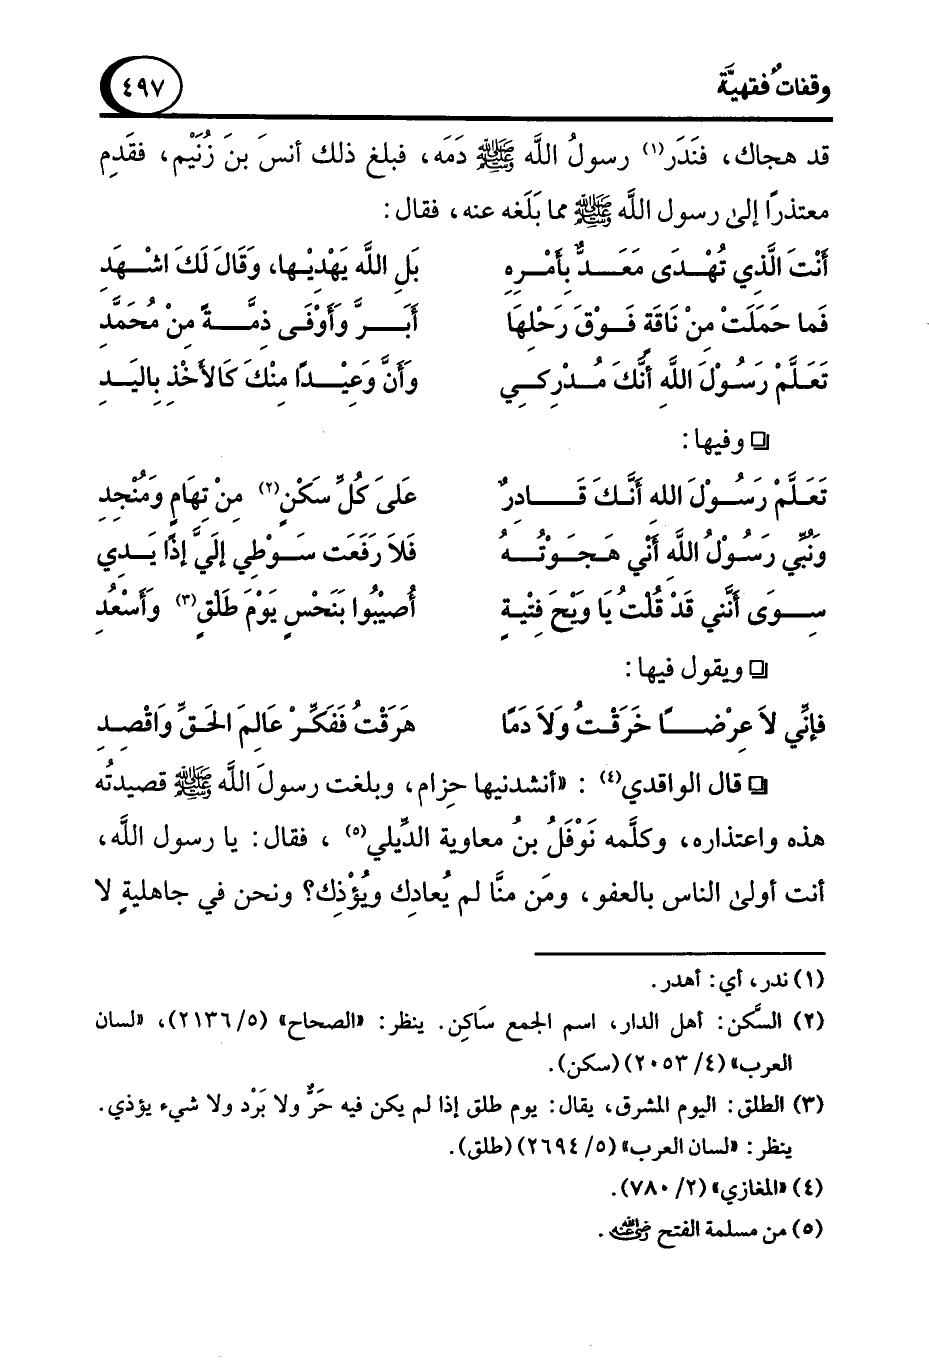 وقفاتٌ فقهيَّة ٤٩٧
قد هجاك، فنَدَر(١) رسولُ اللَّه ﷺ دَمَه، فبلغ ذلك أنسَ بنَ زُنَيْم، فقَدِم
معتذرًا إلىٰ رسول اللَّه ﷺ مما بَلَغه عنه، فقال:
أَنْتَ الَّذِي تُهْدَى مَعَدٌّ بِأَمْرِهِ بَلِ اللَّه يَهْدِيْها، وَقَالَ لَكَ اشْهَدِ
فَما حَمَلَتْ مِنْ نَاقَةٍ فَوْقَ رَحْلِهَا أَبَرَّ وَأَوْفَى ذِمَّةً مِنْ مُحَمَّدِ
تَعَلَّمْ رَسُوْلَ اللَّهِ أَنَّكَ مُدْرِكِي وَأَنَّ وَعِيْدًا مِنْكَ كَالأَخْذِ بِاليَدِ
❏ وفيها:
تَعَلَّمْ رَسُوْلَ الله أَنَّكَ قَادِرٌ عَلىَ كُلِّ سَكْنٍ(٢) مِنْ تِهَامٍ وَمُنْجِدِ
وَنُبِّي رَسُوْلُ اللَّهِ أَنِّي هَجَوْتُهُ فَلاَ رَفَعَت سَوْطِي إِلَيَّ إِذًا يَدِي
سِوَى أَنَّنِي قَدْ قُلْتُ يَا وَيْحَ فِتْيَةٍ أُصِيْبُوا بَنَحْسٍ يَوْمَ طَلْقٍ(٣) وَأَسْعُدِ
❏ ويقول فيها:
فَإِنِّي لاَ عِرْضًا خَرَقْتُ وَلاَ دَمًا هَرَقْتُ فَفَكِّرْ عَالِمَ الحَقِّ وَاقْصِدِ
❏ قال الواقدي(٤): «أنشدنيها حِزام، وبلغت رسولَ اللَّه ﷺ قصيدتُه
هذه واعتذاره، وكلَّمه نَوْفَلُ بنُ معاوية الدِّيلي(٥)، فقال: يا رسول اللَّه،
أنت أولىٰ الناس بالعفو، ومَن منَّا لم يُعادِك ويُؤْذِك؟ ونحن في جاهليةٍ لا
(١) ندر، أي: أهدر.
(٢) السَّكن: أهل الدار، اسم الجمع سَاكِن. ينظر: «الصحاح» (٥/ ٢١٣٦)، «لسان
العرب» (٤/ ٢٠٥٣) (سكن).
(٣) الطلق: اليوم المشرق، يقال: يوم طلق إذا لم يكن فيه حَرٌّ ولا بَرْد ولا شيء يؤذي.
ينظر: «لسان العرب» (٥/ ٢٦٩٤) (طلق).
(٤) «المغازي» (٢/ ٧٨٠).
(٥) من مسلمة الفتح رضي الله عنه.